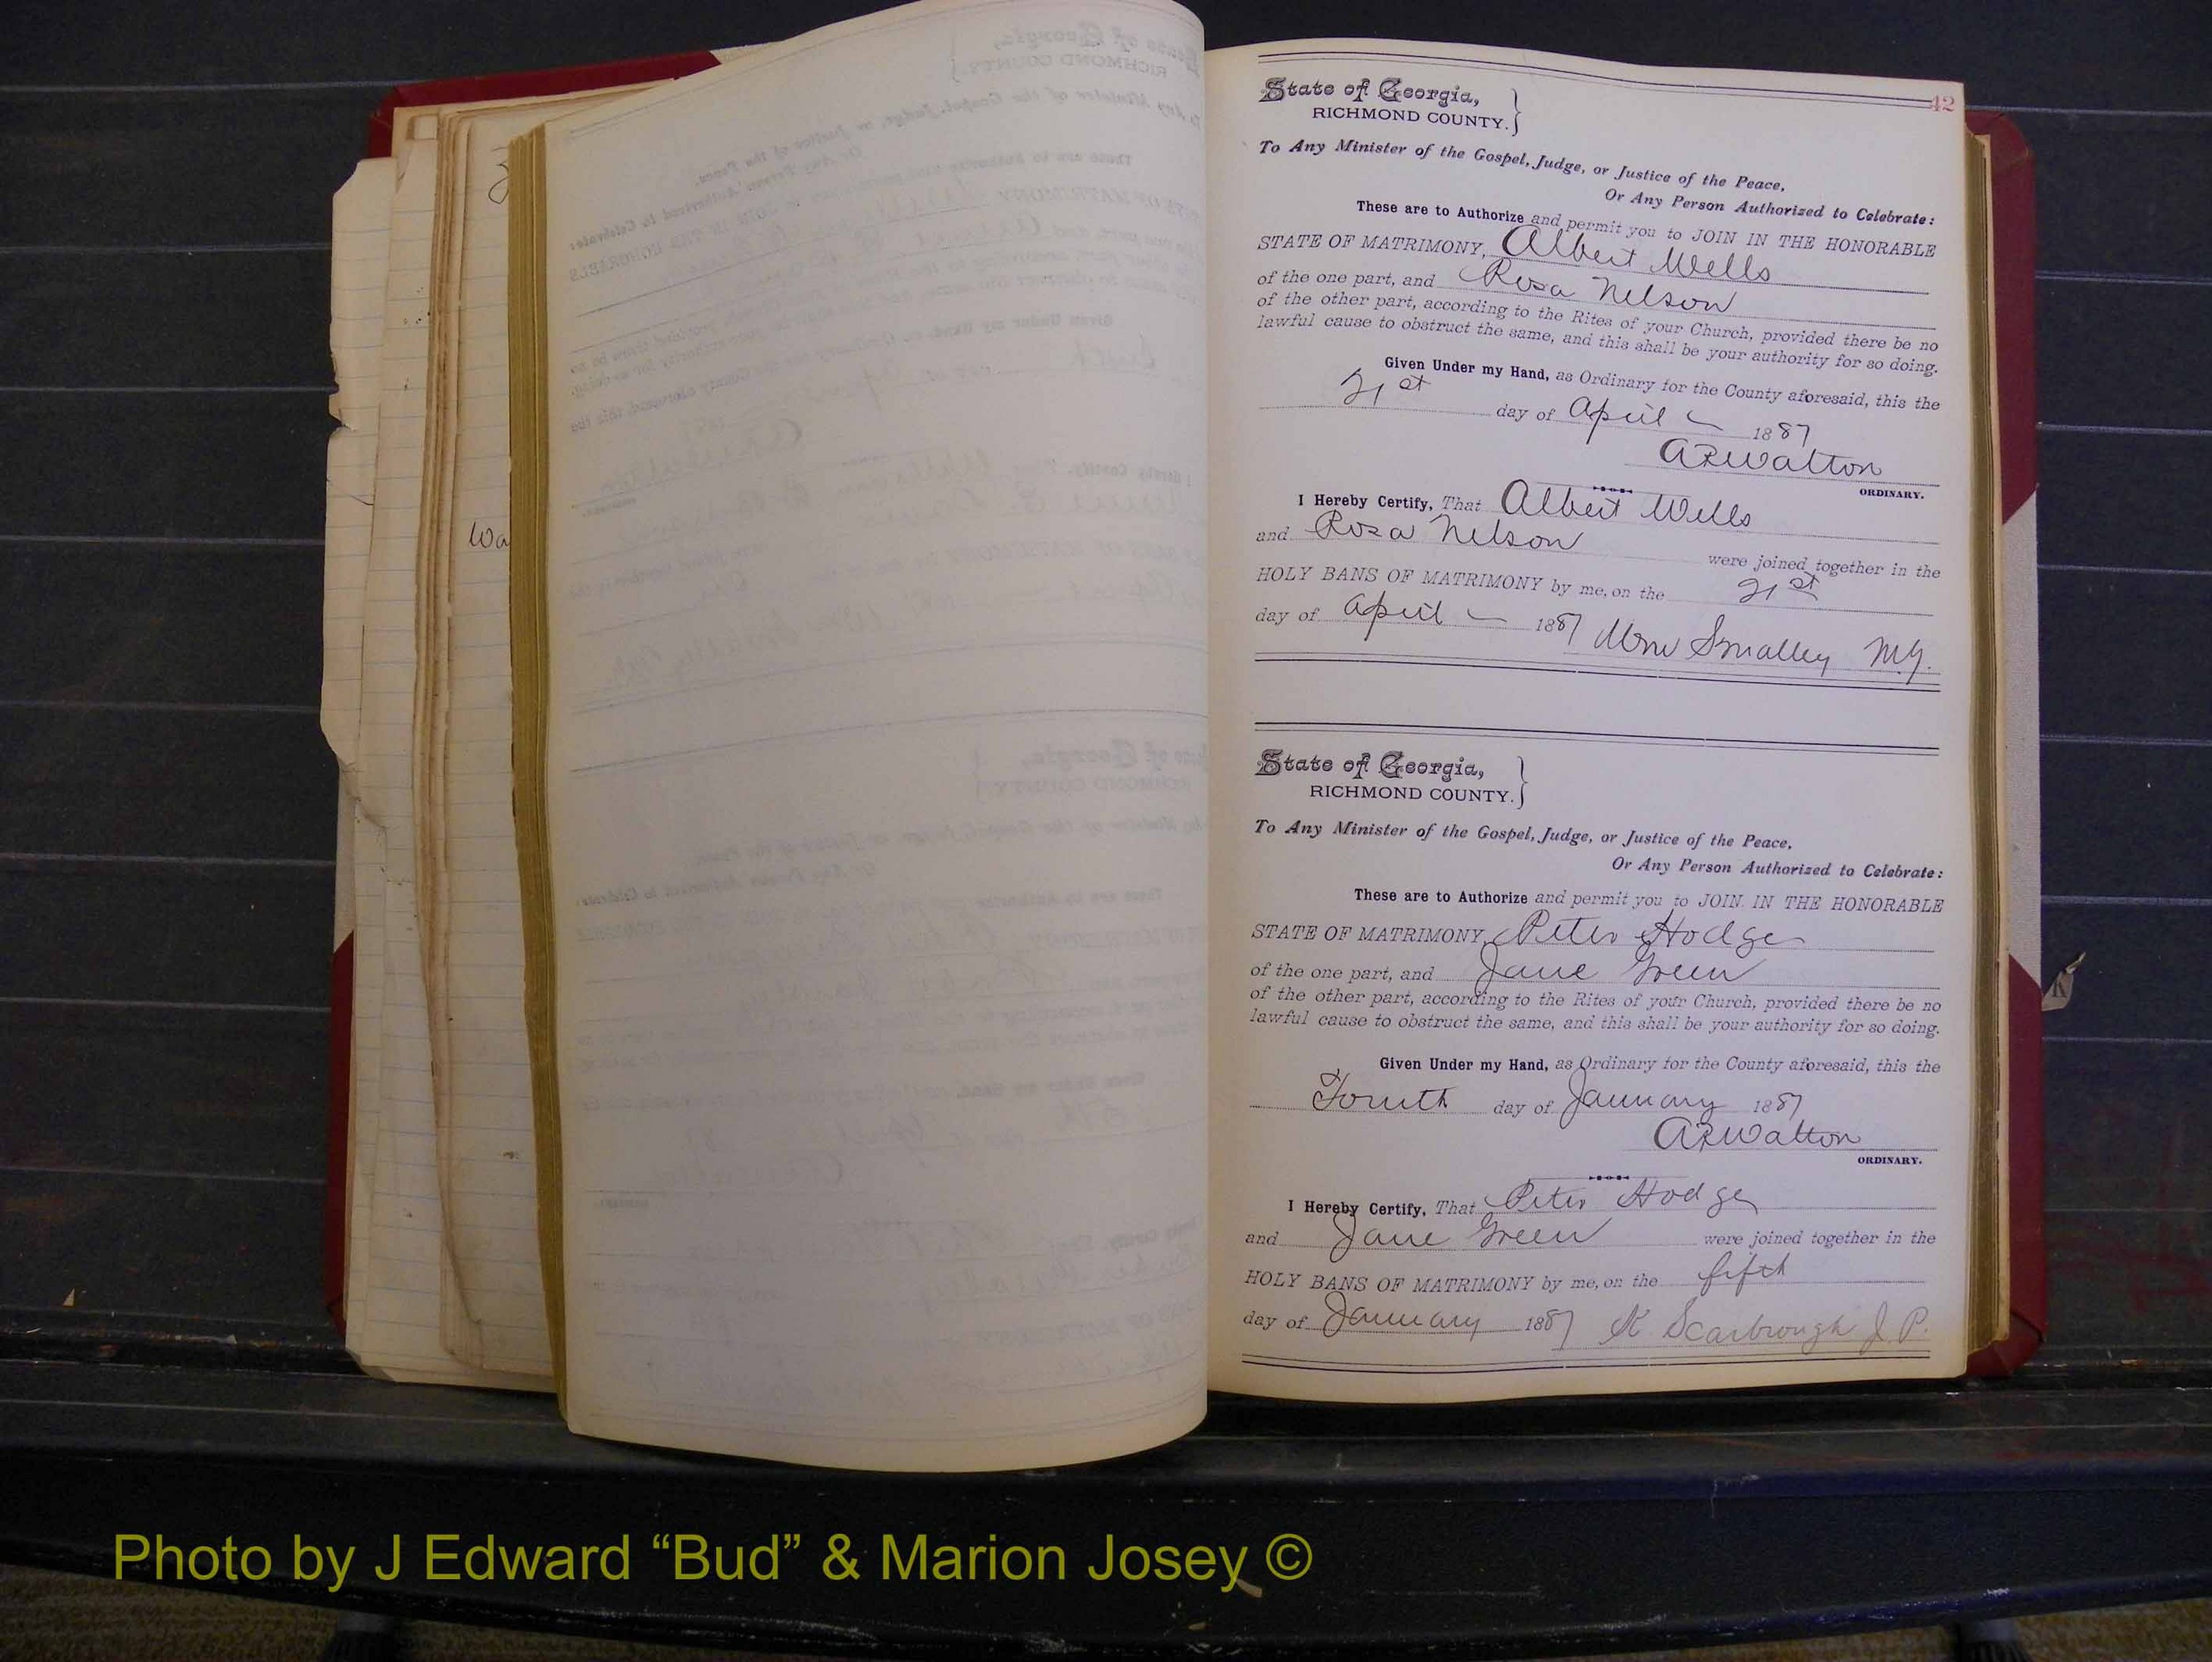 Wa
42
State of Georgia,
RICHMOND COUNTY.
To Any Minister of the Gospel, Judge, or Justice of the Peace,
Or Any Person Authorized to Celebrate:
These are to Authorize and permit you to JOIN IN THE HONORABLE
STATE OF MATRIMONY, Albert Wells
of the one part, and Rosa Nelson
of the other part, according to the Rites of your Church, provided there be no
lawful cause to obstruct the same, and this shall be your authority for so doing.
Given Under my Hand, as Ordinary for the County aforesaid, this the
21st day of April 1887
ARWalton
ORDINARY.
I Hereby Certify, That Albert Wells
and Rosa Nelson were joined together in the
HOLY BANS OF MATRIMONY by me, on the 21st
day of April 1887 Wm Smalley M.G.
State of Georgia,
RICHMOND COUNTY.
To Any Minister of the Gospel, Judge, or Justice of the Peace,
Or Any Person Authorized to Celebrate:
These are to Authorize and permit you to JOIN IN THE HONORABLE
STATE OF MATRIMONY, Peter Hodge
of the one part, and Jane Green
of the other part, according to the Rites of your Church, provided there be no
lawful cause to obstruct the same, and this shall be your authority for so doing.
Given Under my Hand, as Ordinary for the County aforesaid, this the
Fourth day of January 1887
ARWalton
ORDINARY.
I Hereby Certify, That Peter Hodge
and Jane Green were joined together in the
HOLY BANS OF MATRIMONY by me, on the fifth
day of January 1887 K. Scarbrough J. P.
Photo by J Edward “Bud” & Marion Josey ©